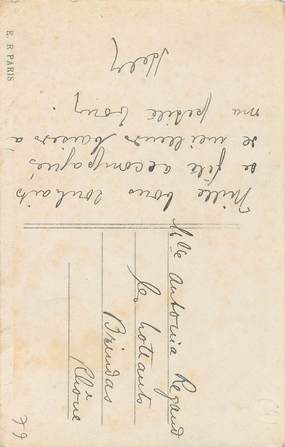 E. R PARIS
Mille bons souhaits
de fête accompagnés
de meilleurs baisers à
ma petite
Mlle Antonia Regaud
les
Brindas
Rhône